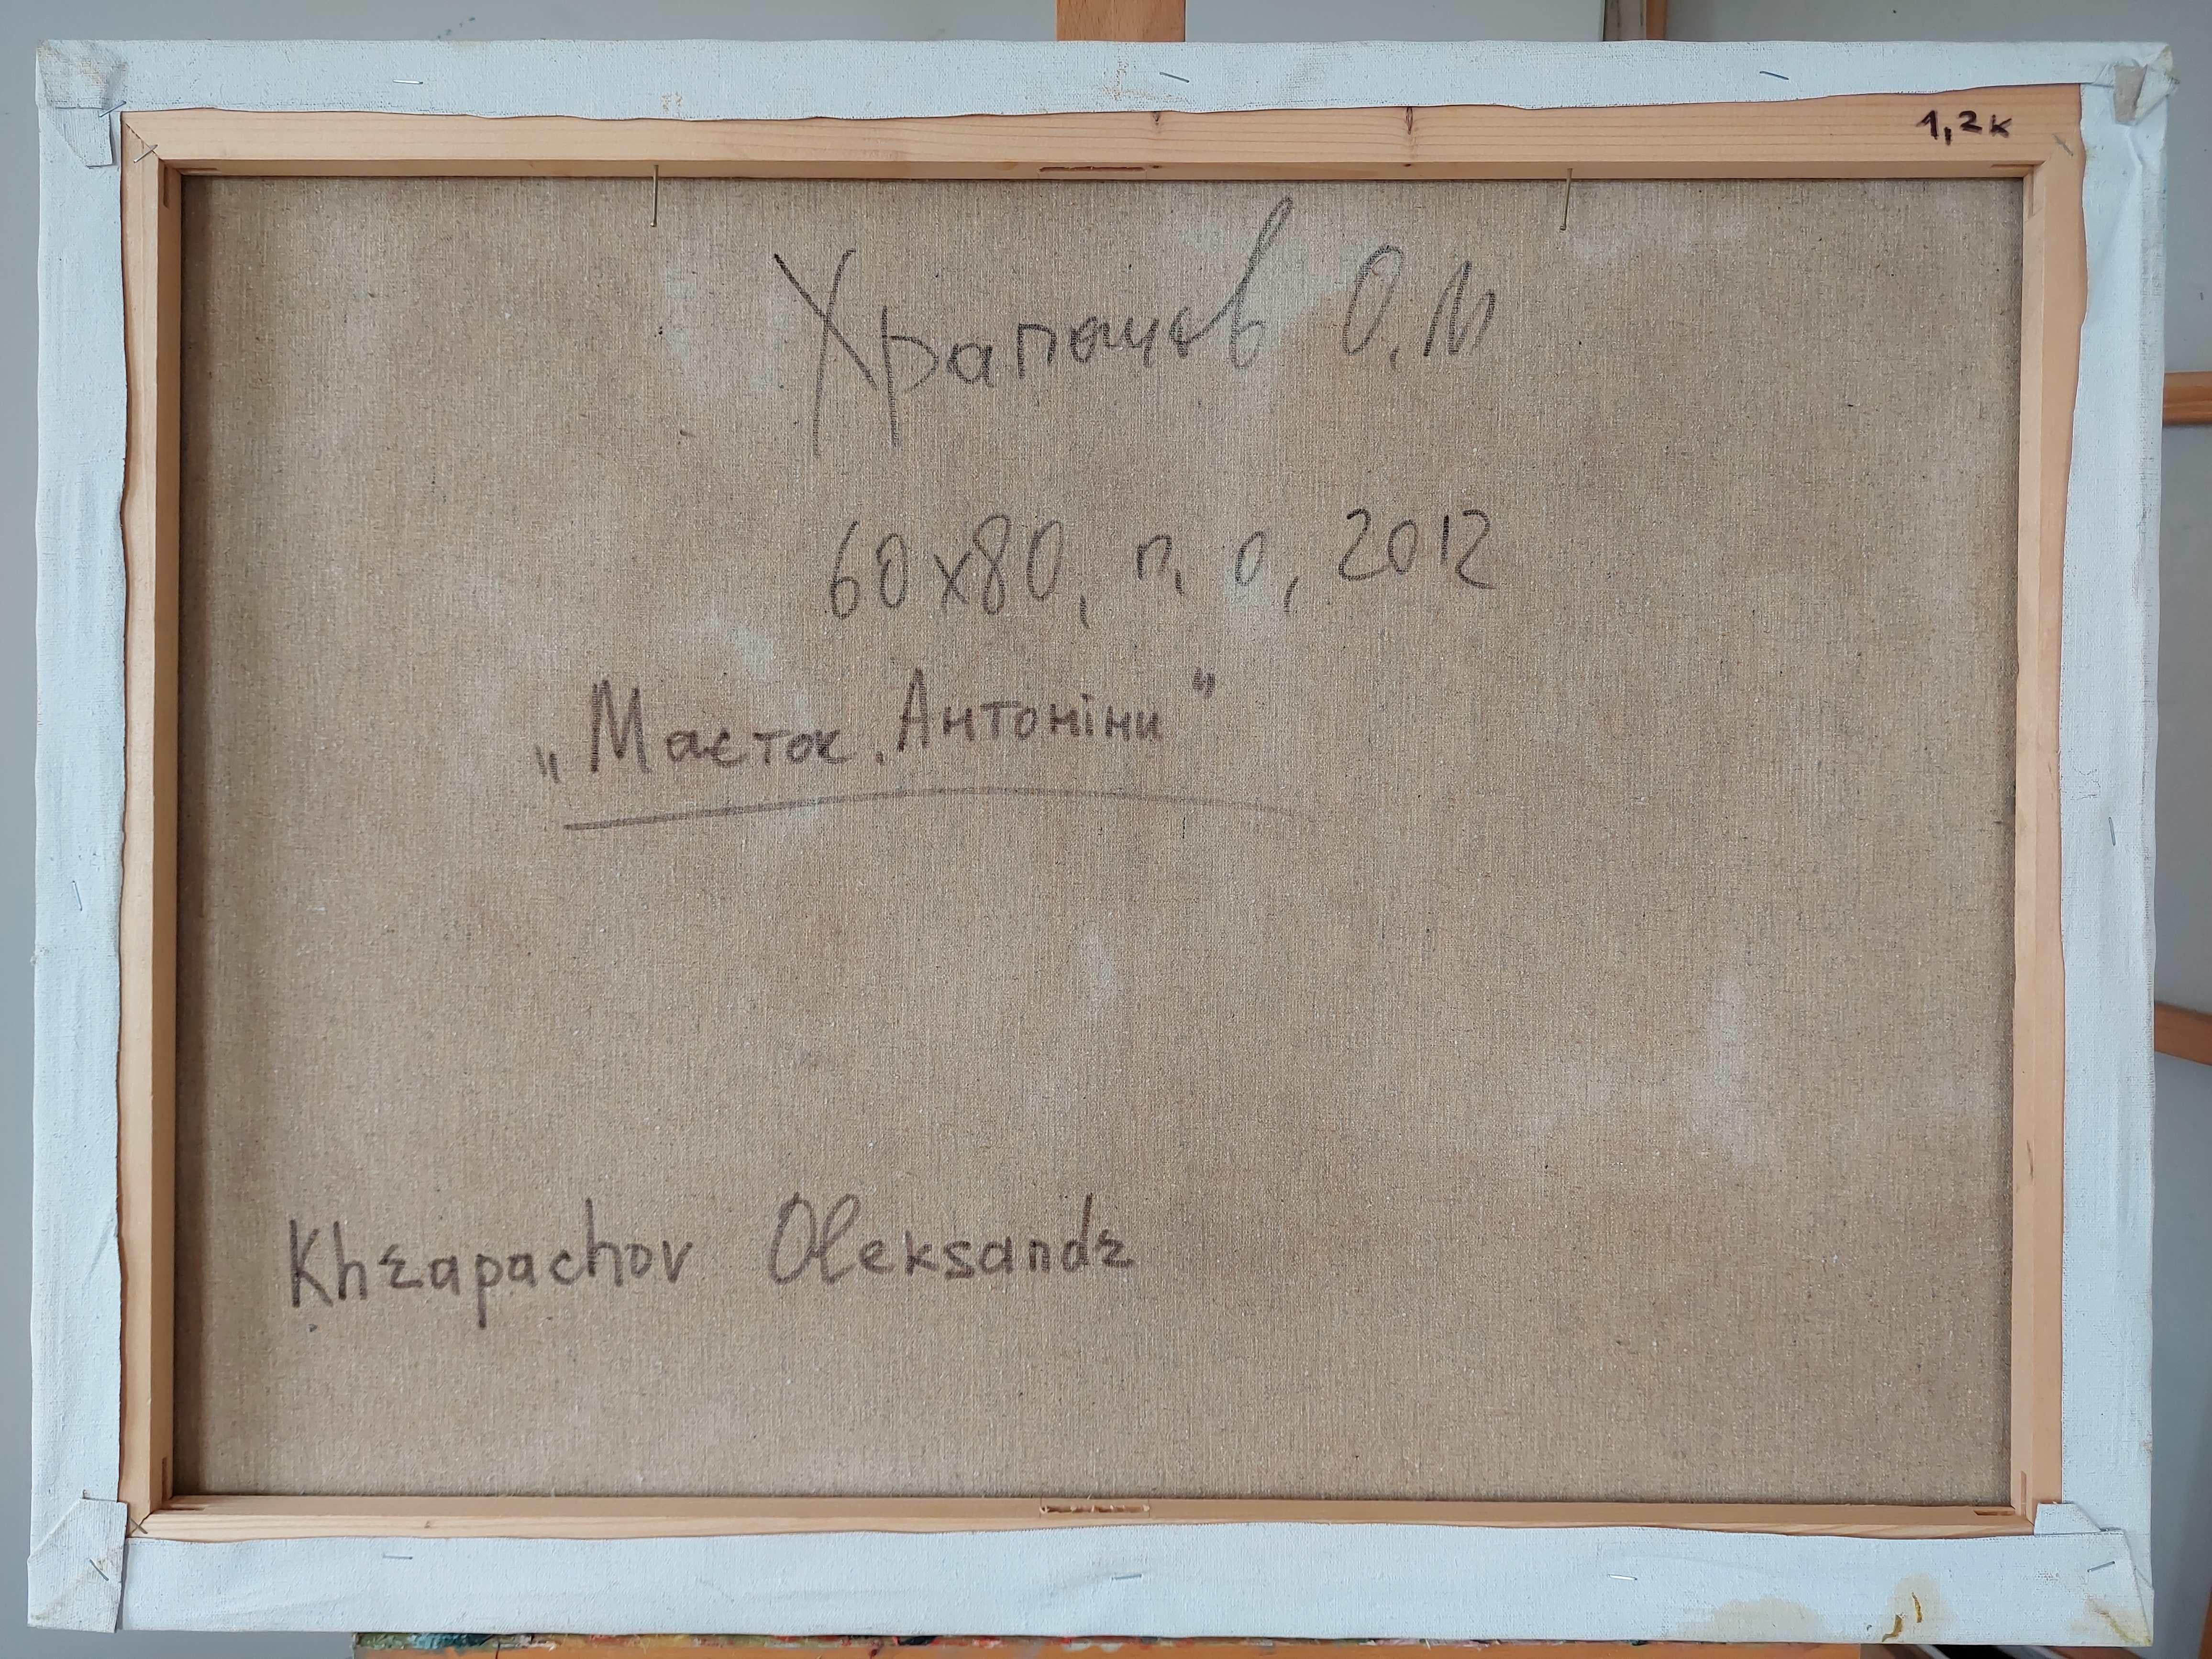 1,2к
Храпачов О.М
60х80, п. о, 2012
„Маєток. Антоніни"
Khrapachov Oleksandr